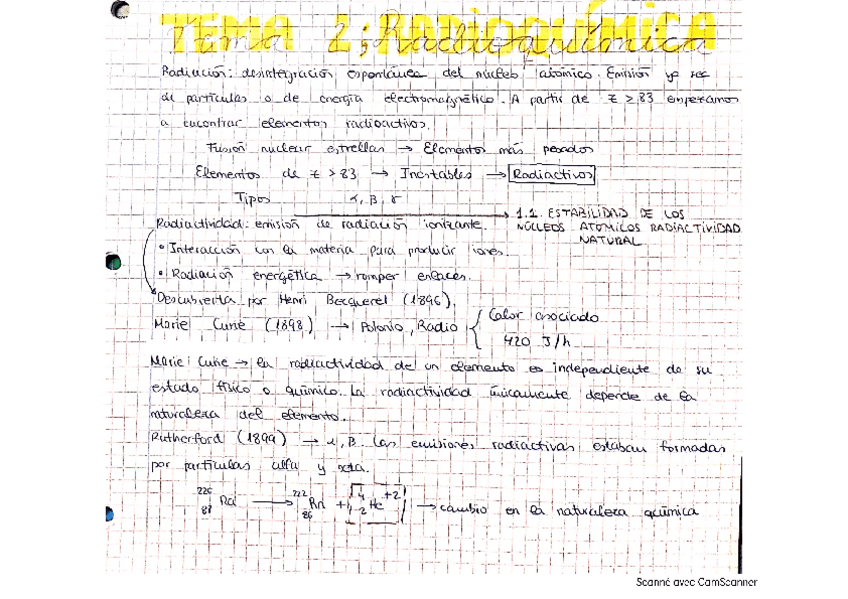 TEMA 2; Radioquímica
Radiación: desintegración espontánea del núcleo atómico. Emisión
de partículas o de energía electromagnético. A partir de z > 83 empezamos
a encontrar elementos radioactivos.
Fusión nuclear estrellas → Elementos más pesados
Elementos de z > 83 → Inestables → Radiactivos
Tipos α, β, γ
1.1. ESTABILIDAD DE LOS
NÚCLEOS ATÓMICOS RADIACTIVIDAD
NATURAL
Radiactividad: emisión de radiación ionizante.
• Interacción con la materia para producir iones.
• Radiación energética → romper enlaces.
Descubierta por Henri Becquerel (1896).
Marie Curie (1898) → Polonio, Radio { Calor asociado
420 J/h
Marie Curie → la radiactividad de un elemento es independiente de su
estado físico o químico. La radiactividad únicamente depende de la
naturaleza del elemento.
Rutherford (1899) → α, β. Las emisiones radiactivas estaban formadas
por partículas alfa y
²²⁶₈₈Ra → ²²²₈₆Rn + ⁴₂He⁺² → cambio en la naturaleza química
Scanné avec CamScanner